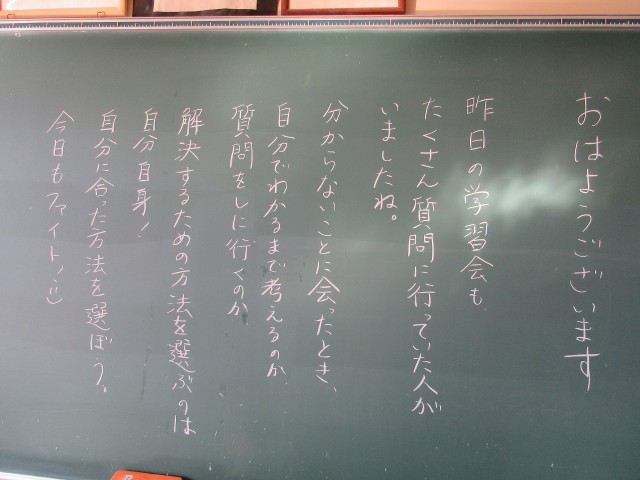 おはようございます
昨日の学習会も
たくさん質問に行っていた人が
いましたね。
分からないことに会ったとき、
自分でわかるまで考えるのか
質問をしに行くのか
解決するための方法を選ぶのは
自分自身!
自分に合った方法を選ぼう。
今日もファイト!:)